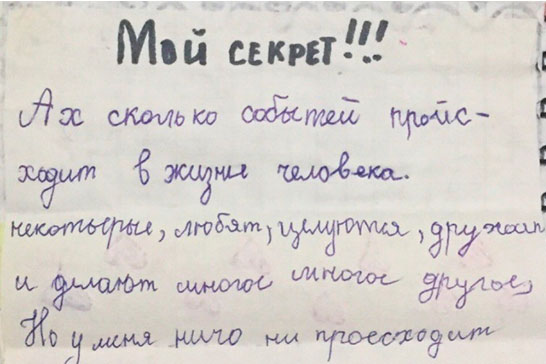 Мой секрет!!!
Ах сколько событей пройс-
ходит в жизне человека.
некотырые, любят, целуются, дружат
и делают многое многое другое,
Но у меня ничо ни происходит